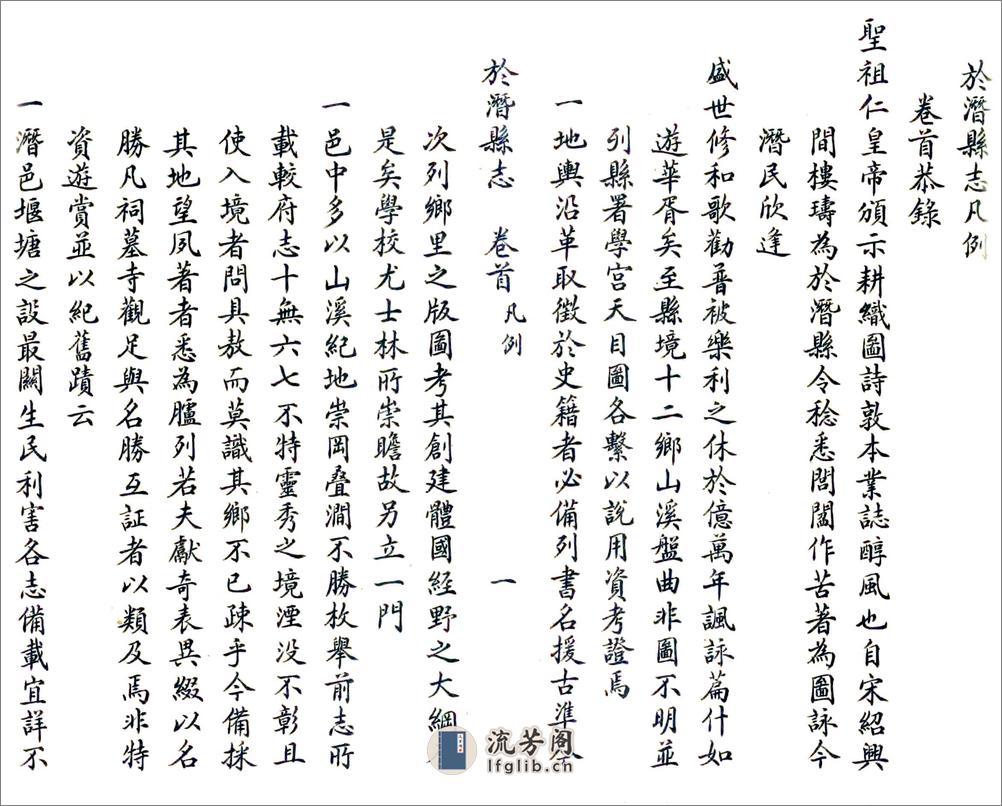 於潛縣志凡例
卷首恭錄
聖祖仁皇帝頒示耕織圖詩敦本業誌醇風也自宋紹興
間樓璹為於潛縣令稔悉閭閻作苦著為圖詠今
潛民欣逢
盛世修和歌勸普被樂利之休於億萬年諷詠篇什如
遊華胥矣至縣境十二鄉山溪盤曲非圖不明並
列縣署學宮天目圖各繫以說用資考證焉
一地輿沿革取徵於史籍者必備列書名援古準
於潛縣志 卷首 凡例 一
次列鄉里之版圖考其創建體國經野之大綱
是矣學校尤士林所崇瞻故另立一門
一邑中多以山溪紀地崇岡疊澗不勝枚舉前志所
載較府志十無六七不特靈秀之境湮没不彰且
使入境者問具敖而莫識其鄉不已疎乎今備採
其地望夙著者悉為臚列若夫獻奇表異綴以名
勝凡祠墓寺觀足與名勝互証者以類及焉非特
資遊賞並以紀舊蹟云
一潛邑堰塘之設最關生民利害各志備載宜詳不
流芳阁
lfglib.cn